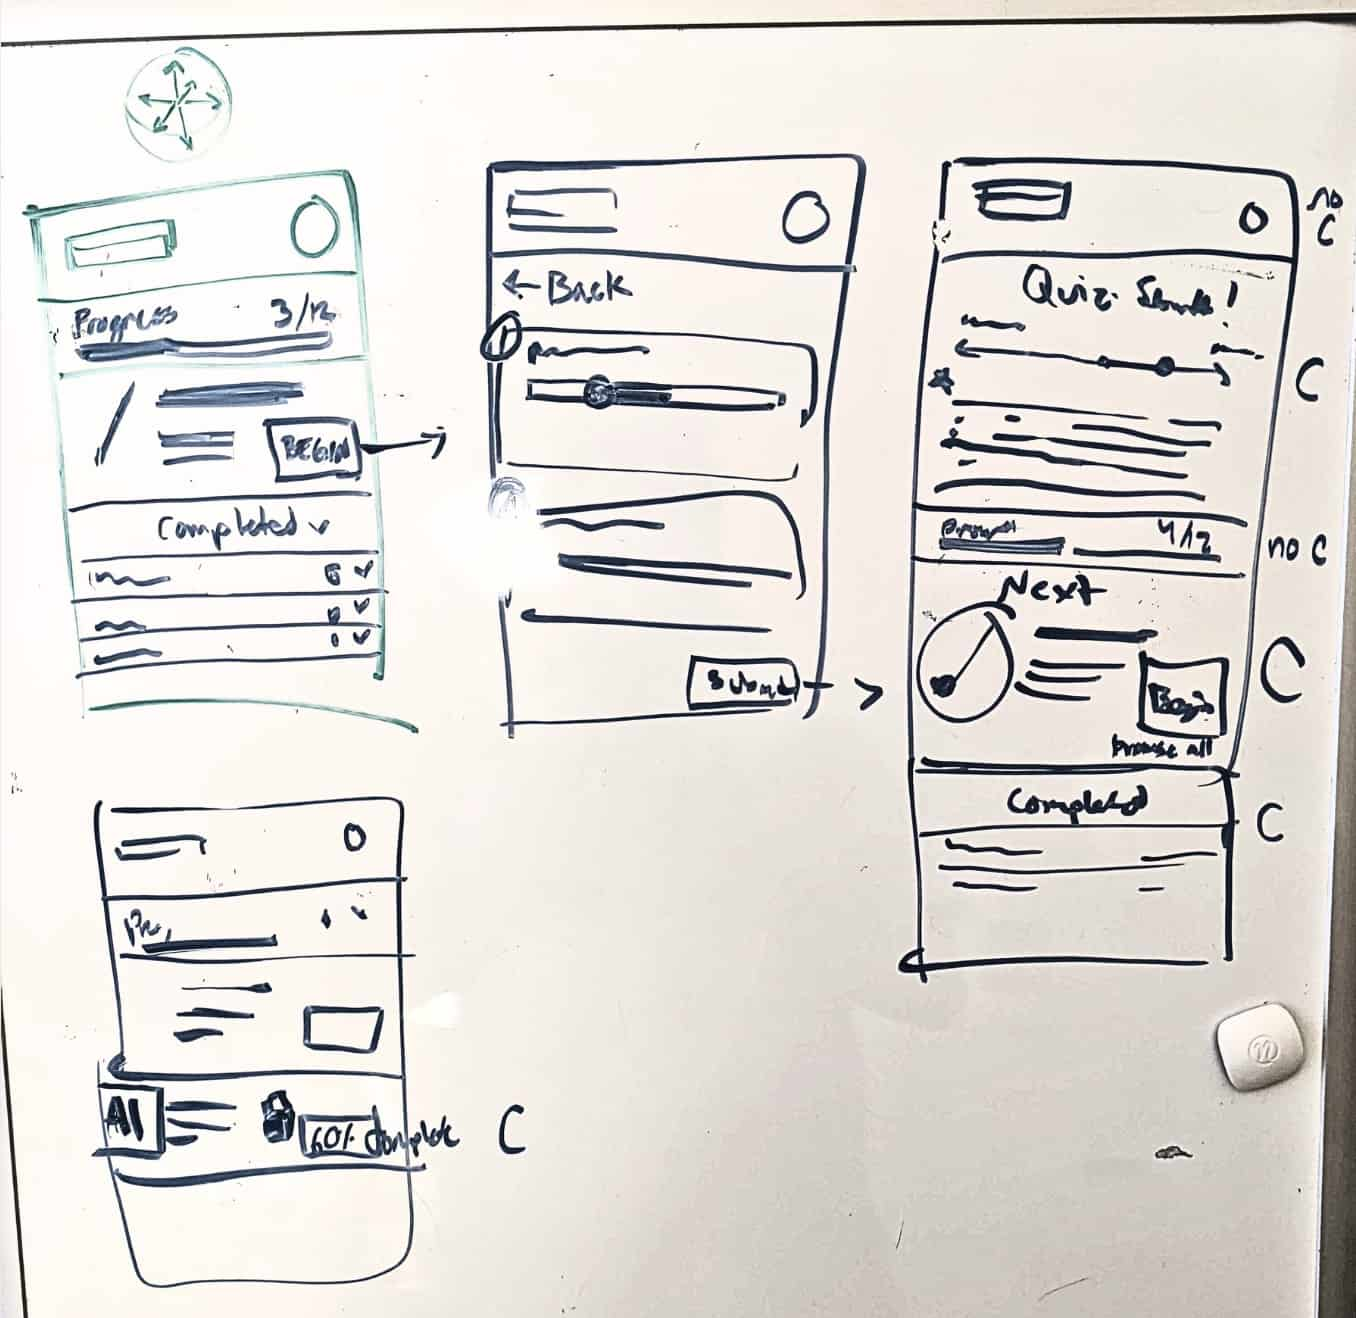 Progress 3/12
BEGIN
Completed
← Back
1
Submit
no
C
Quiz
C
4/12
no C
Next
C
Begin
browse all
Completed
C
AI
60% Complete
C